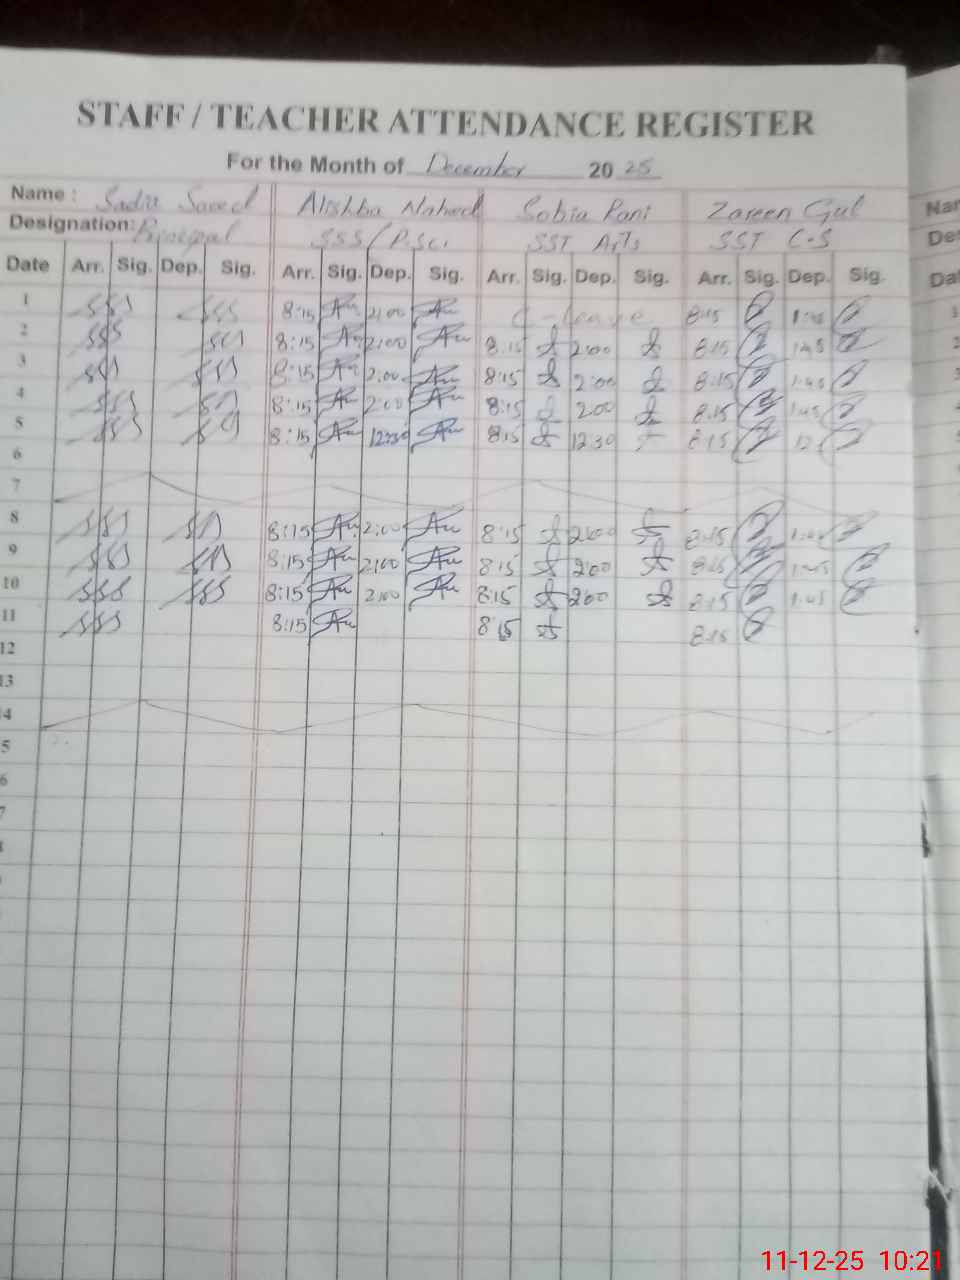 STAFF / TEACHER ATTENDANCE REGISTER
For the Month of December 2025
Name : Sadia Saeed Alishba Naheed Sobia Rani Zareen Gul
Designation: Principal SSS/P.Sci SST Arts SST C-S
Date Arr. Sig. Dep. Sig. Arr. Sig. Dep. Sig. Arr. Sig. Dep. Sig. Arr. Sig. Dep. Sig.
1 SSS SSS 8:15 2:00 C-leave 8:15 1:45
2 SSS SSS 8:15 2:00 8:15 2:00 8:15 1:45
3 SSS SSS 8:15 2:00 8:15 2:00 8:15 1:45
4 SSS SSS 8:15 2:00 8:15 2:00 8:15 1:45
5 SSS SSS 8:15 12:30 8:15 12:30 8:15
6
7
8 SSS SSS 8:15 2:00 8:15 2:00 8:15 1:45
9 SSS SSS 8:15 2:00 8:15 2:00 8:15 1:45
10 SSS SSS 8:15 2:00 8:15 2:00 8:15 1:45
11 SSS 8:15 8:15 8:15
12
13
4
5
6
7
11-12-25 10:21